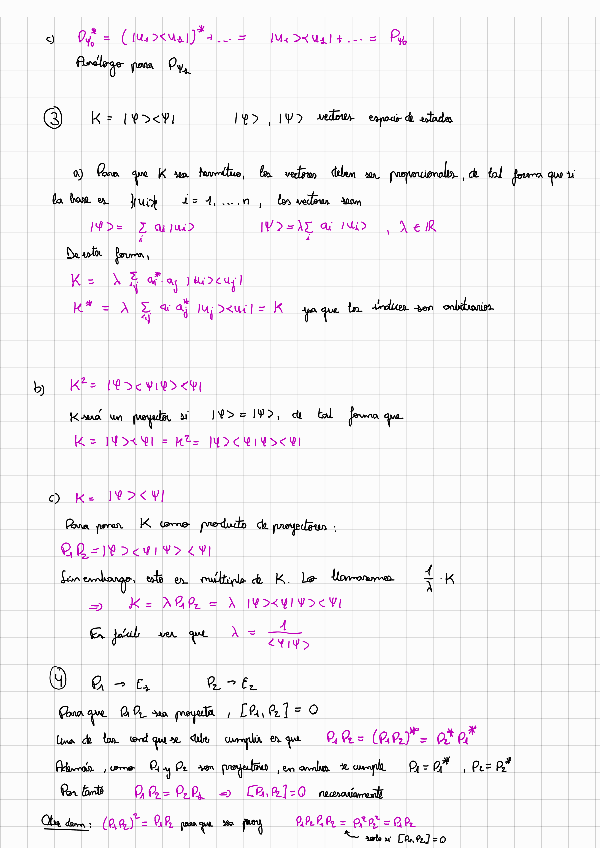 c) P_ψ0^* = (|u₁><u₁|)^* + ... = |u₁><u₁| + ... = P_ψ0
Análogo para P_ψ1
③ K = |φ><ψ| |φ>, |ψ> vectores espacio de estados
a) Para que K sea hermítico, los vectores deben ser proporcionales, de tal forma que si
la base es {|ui>} i = 1, ..., n, los vectores sean
|φ> = Σ_i ai |ui> |ψ> = λ Σ_i ai |ui>, λ ∈ ℝ
De esta forma,
K = λ Σ_ij ai^* · aj |ui><uj|
K^* = λ Σ_ij ai aj^* |uj><ui| = K ya que los índices son arbitrarios
b) K² = |φ><ψ|φ><ψ|
K será un proyector si |φ> = |ψ>, de tal forma que
K = |φ><ψ| = K² = |φ><ψ|φ><ψ|
c) K = |φ><ψ|
Para poner K como producto de proyectores:
P₁P₂ = |φ><φ|ψ><ψ|
Sin embargo, esto es múltiplo de K. Lo llamaremos 1/λ · K
⇒ K = λ P₁P₂ = λ |φ><φ|ψ><ψ|
Es fácil ver que λ = 1/<φ|ψ>
④ P₁ → E₁ P₂ → E₂
Para que P₁P₂ sea proyecta, [P₁, P₂] = 0
Una de las cond que se debe cumplir es que P₁P₂ = (P₁P₂)^* = P₂^* P₁^*
Además, como P₁ y P₂ son proyectores, en ambos se cumple P₁ = P₁^*, P₂ = P₂^*
Por tanto P₁P₂ = P₂P₁ ⇒ [P₁, P₂] = 0 necesariamente
Otra dem: (P₁P₂)² = P₁P₂ para que sea proy P₁P₂P₁P₂ = P₁²P₂² = P₁P₂
si [P₁, P₂] = 0